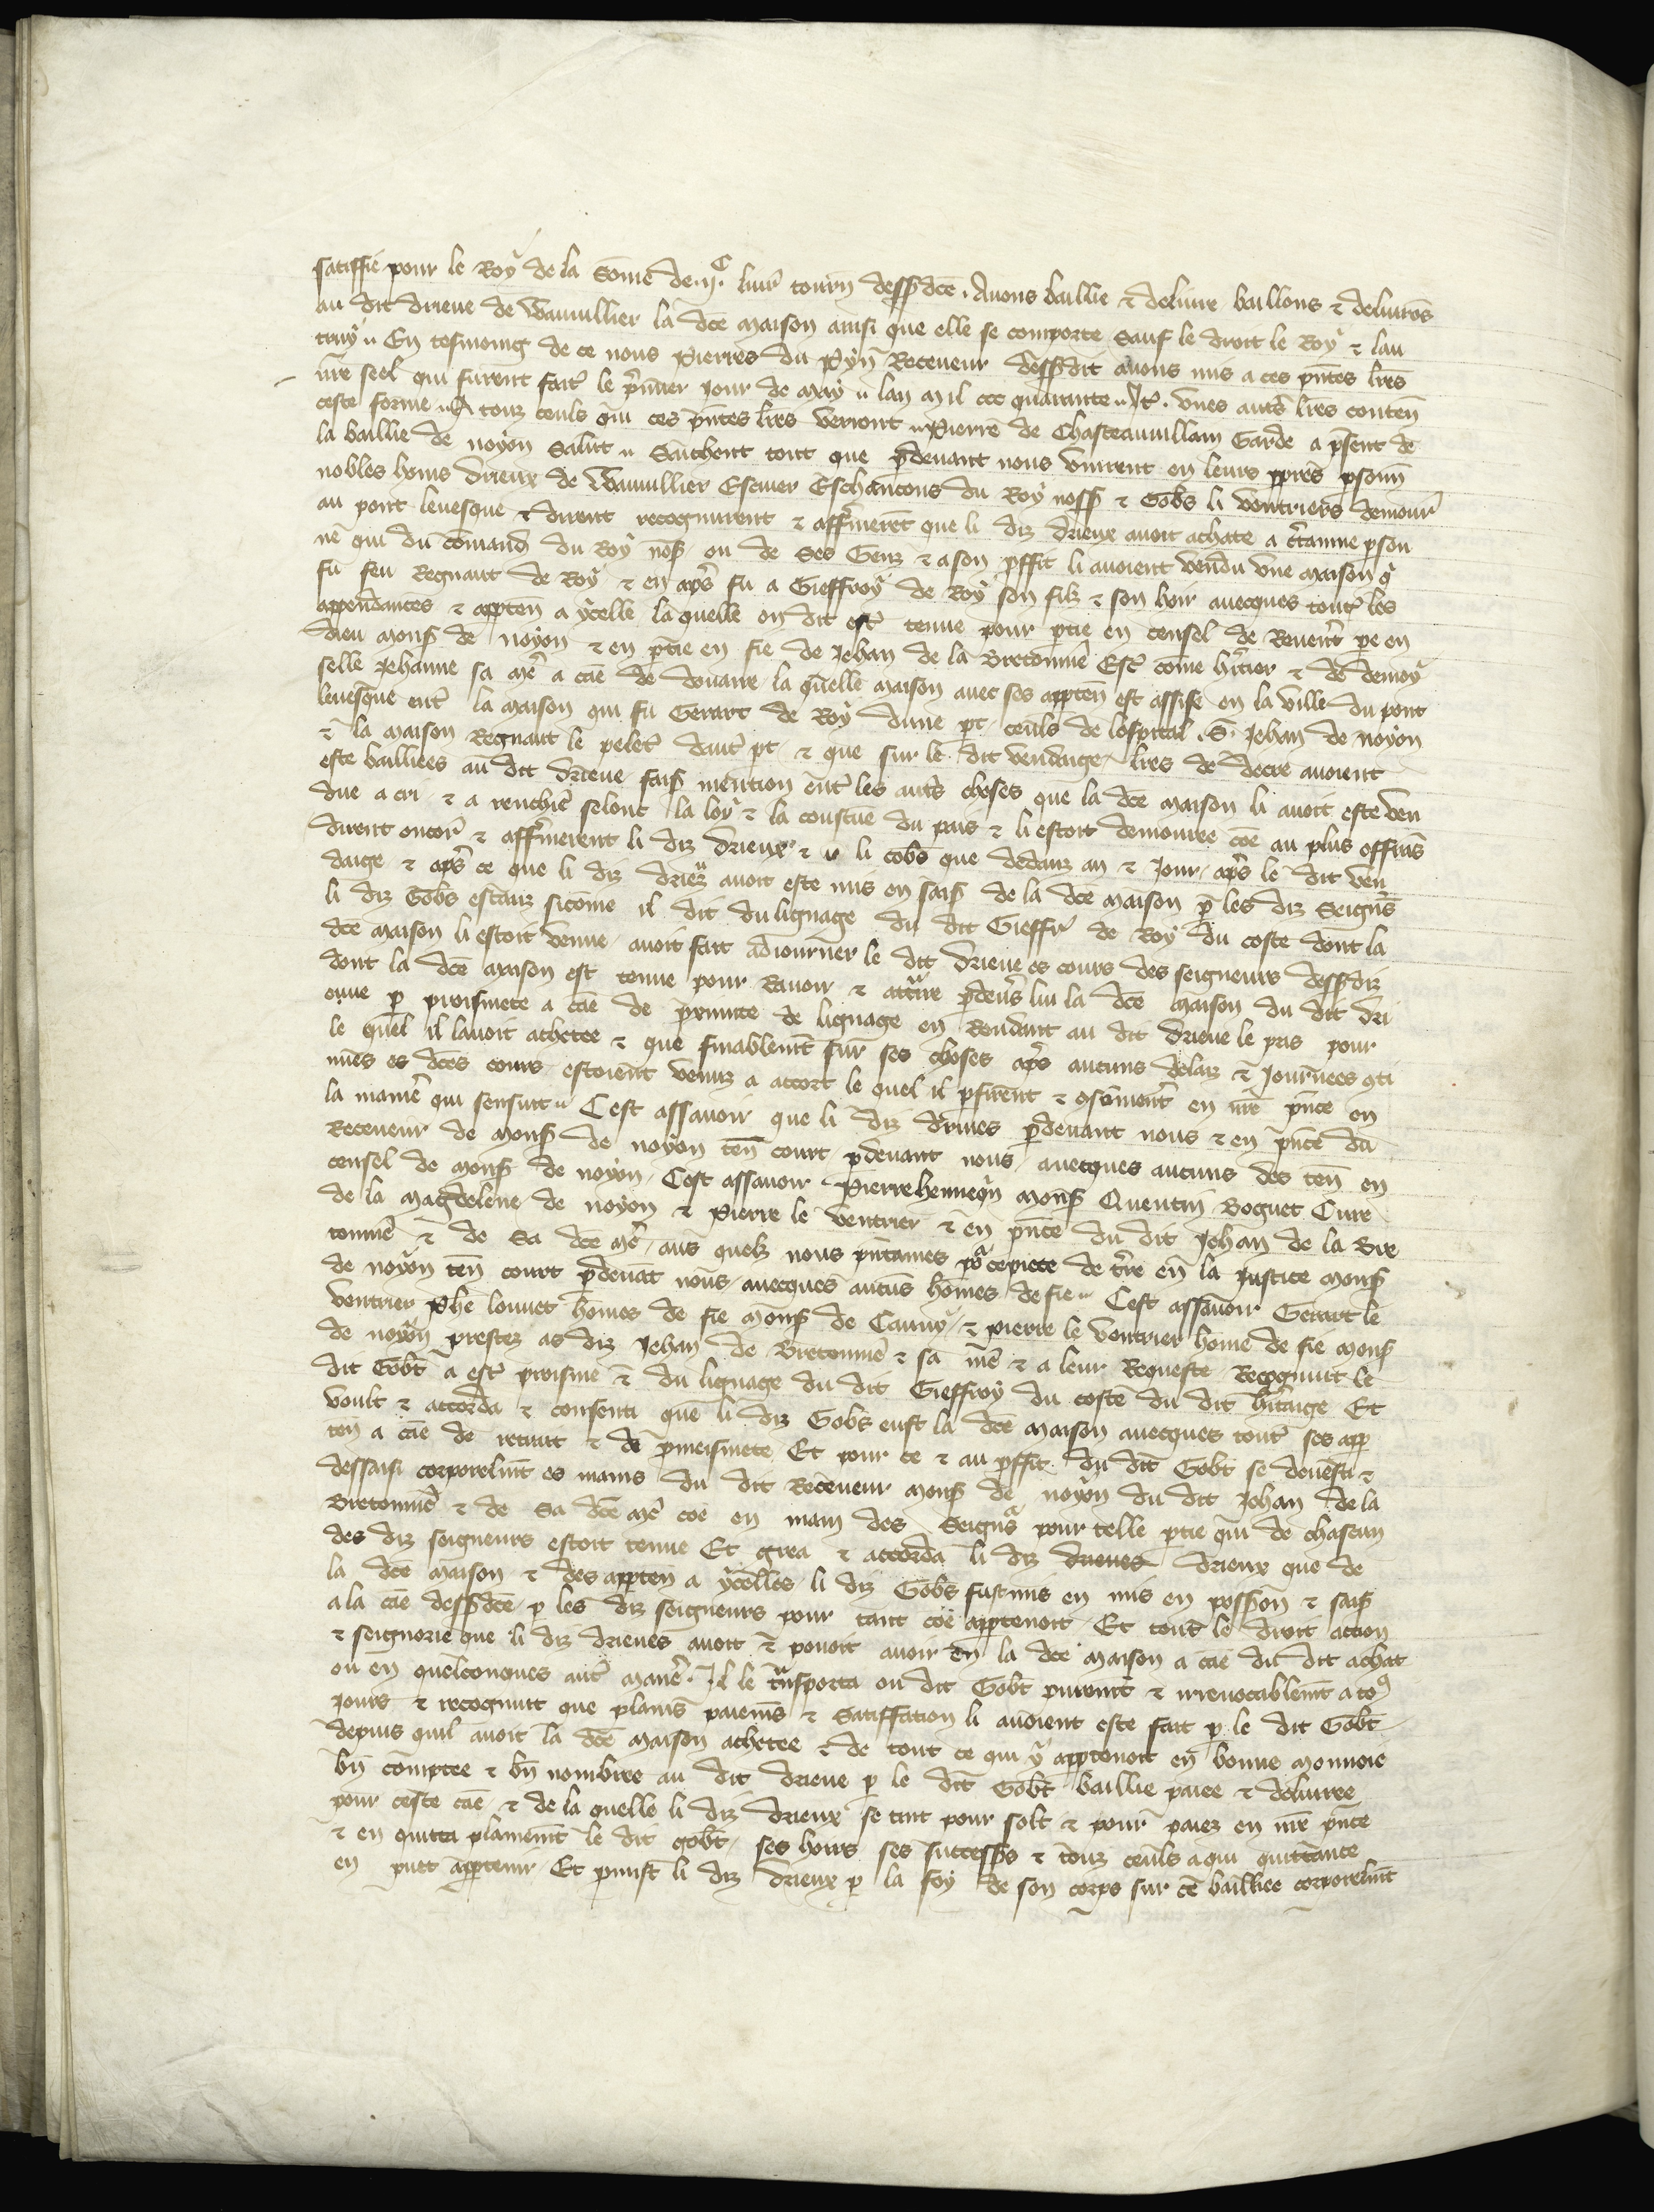 satiffie pour le Roy de la Some de .ii.C livr tourn dessdce . Avons baillie & delivre baillons & delivros
au dit drieue de Wauuillier la dce maison ainsi que elle se comporte Sauf le droit le Roy & lau
truy En tesmoing de ce nous Pierres du Pyn Receveur dessdit avons mis a ces pntes lres
nre seel qui furent fait le pmier jour de may lan mil ccc quarante It. unes autres lres conten
ceste forme A touz ceuls qui ces pntes lres verront Pierre de Chasteauuillain Garde a psent de
la baillie de noyon Salut Saichent tout que pdevant nous vinrent en leurs ppres psonn
nobles homs drieux de Wauuillier Escuier Eschancons du Roy noss & Gobs li ventriers demour
au pont levesque & dirent recognurent & affermeret que li diz drieux avoit achate a ctainne pson
ne qui du comand du Roy nos ou de Ses Genz & a son pffit li avoient vendu une maison q
fu feu Regnaut de Roy & en aps fu a Gieffroy de Roy son filz & son hoir avecques tout les
appendances & apptén a ycelle la quelle on dit est tenue pour ptie en censel de Reverent pe en
dieu mons de noyon & en ptie en fie de Jehan de la Bretonnie Esc come hritier & de demoy
selle Jehanne sa me a cae de douaire la quelle maison avec ses apptén est assise en la ville du pont
levesque ent la maison qui fu Gerart de Roy dune pt ceuls de lospital .S. Jehan de noyon
& la maison Regnaut le pelet daut pt & que sur le dit vendaige lres de decre avoient
este baillees au dit drieue fais mention ent les auts choses que la dce maison li avoit este ven
due a cri & a renchie selonc la loy & la coustue du pais & li estoit demouree coe au plus offras
dirent encor & affermerent li diz drieux & li Gobs que dedanz an & jour aps le dit ven
daige & aps ce que li diz drieux avoit este mis en sais de la dce maison p les diz Seigns
li diz Gobs estanz sicome il dit du lignage du dit Gieffr de Roy du coste dont la
dce maison li estoit venue avoit fait adiourner le dit drieue es cours des seigneurs dessdiz
dont la dce maison est tenue pour Ravoir & attraire pdevs lui la dce maison du dit dri
eue p proismete a cae de primite de lignage en Rendant au dit drieue le pris pour
le quel il lavoit achetee & que finablemt sur ses choses aps aucuns delaiz & journees qti
nues es dces cours estoient venuz a accort le quel il pfirent & qsomment en nre pnce en
la manie qui sensuit Cest assavoir que li diz drieues pdevant nous & en pnce du
Receveur de mons de noyon ten court pdevant nous avecques aucuns des ten en
censel de mons de noyon Cest assavoir Pierre henneqn mons Quentin Boguet Cure
de la magdelene de noyon & Pierre le ventrier & en pnce du dit Jehan de la Bre
tonnie & de Sa dce me aus quelz nous pntames po ce piece de tre en la justice mons
de noyon ten court pdevat nous avecques aucus homes de fie Cest assavoir Gerart le
ventrier Phe louvet homes de fie mons de Cauny & pierre le ventrier home de fie mons
de noyon prestez as diz Jehan de Bretonnie & sa me & a leur Requeste Recognut le
dit Gobt a est proisme & du lignage du dit Gieffroy du coste du dit hritaige Et
voult & accorda & consenti que li diz Gobs eust la dce maison avecques tout ses app
ten a cae de retrait & de pmeismete Et pour ce & au pffit du dit Gobt se devesti &
dessaisi corporelmt es mains du dit Receveur mons de noyon du dit Jehan de la
Bretonnie & de Sa dce me coe en main des Seigns pour telle ptie qui de chascun
des diz seigneurs estoit tenue Et grea & accorda li diz drieues drieux que de
la dce maison & des apptén a ycelles li diz Gobs fust mis en mis en possion & sais
a la cae dessdce p les diz seigneurs pour tant coe apptenoit Et tout le droit action
& seignorie que li diz drieues avoit & povoit avoir en la dce maison a cae du dit achat
ou en quelconques aut manie . Il le transporta ou dit Gobt puremt & irrevocablemt a to9
jours & recognut que plains paiems & Satiffation li avoient este fait p le dit Gobt
depuis quil avoit la dce maison achetee & de tout ce qui y apptenoit en bonne monnoie
bn comptee & bn nombree au dit drieue p le dit Gobt baillie paiee & delivree
pour ceste cae & de la quelle li diz drieux se tint pour solt & pour paiez en nre pnce
& en quitta plainemt le dit gobt ses hoirs ses successos & touz ceuls a qui quittance
en puet apptenir Et pmist li diz drieux p la foy de son corps sur ce baillee corporelmt